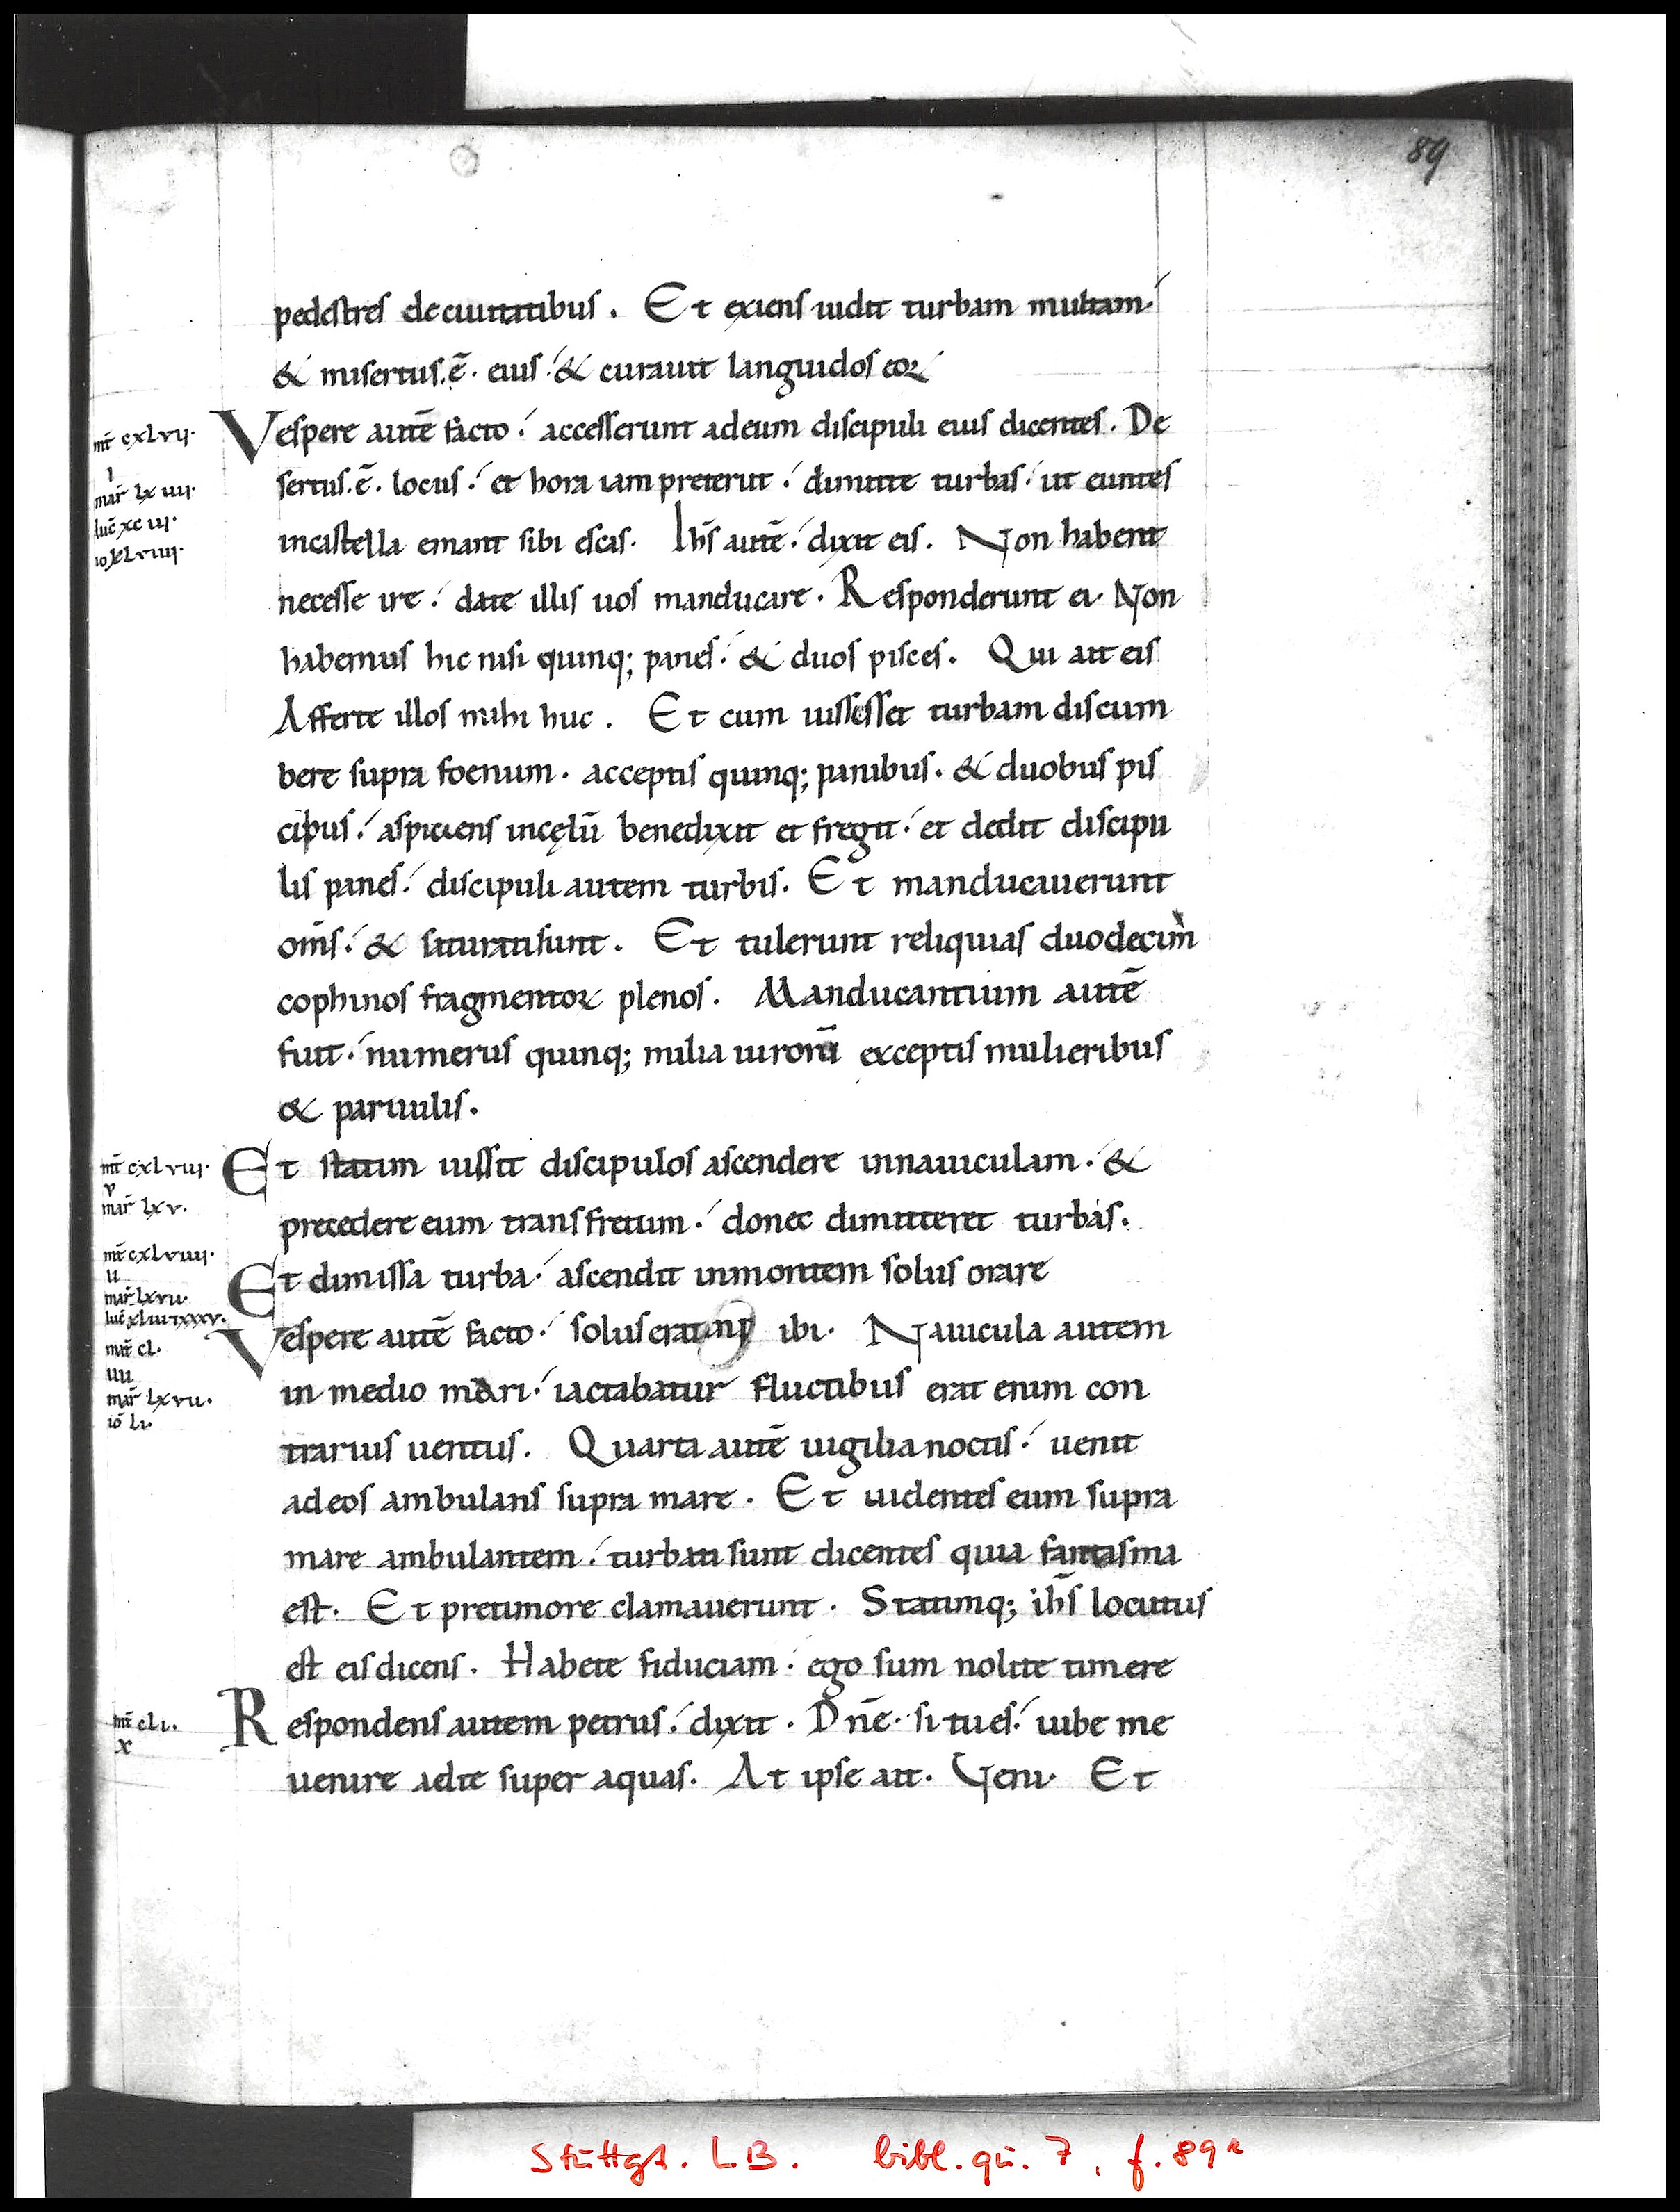 89
pedestres deciuitatibus. Et exiens uidit turbam multam.
& misertus.ē. eius. & curauit languidos eoꝝ
mt̄ cxlvij.
Vespere autē facto. accesserunt adeum discipuli eius dicentes. De
i
mar̄ lxiiij.
sertus.ē. locus. et hora iam preterit. dimitte turbas. ut euntes
luc̄ xciij.
io xlviiij.
incastella emant sibi escas. Ihs̄ autē. dixit eis. Non habent
necesse ire. date illis uos manducare. Responderunt ei. Non
habemus hic nisi quinq; panes. & duos pisces. Qui ait eis
Afferte illos mihi huc. Et cum iussesset turbam discum
bere supra foenum. acceptis quinq; panibus. & duobus pis
cibus. aspiciens incęlū benedixit et fregit. et dedit discipu
lis panes. discipuli autem turbis. Et manducauerunt
om̄s. & saturatisunt. Et tulerunt reliquias duodecim
cophinos fragmentoꝝ plenos. Manducantium autē
fuit. numerus quinq; milia uirorū exceptis mulieribus
& paruulis.
mt̄ cxlviij.
Et statim iussit discipulos ascendere innauiculam. &
v
mar̄ lxv.
precedere eum transfretum. donec dimitteret turbas.
mt̄ cxlviiij.
ii
Et dimissa turba. ascendit inmontem solus orare
mar̄ lxvii.
Vespere autē facto. soluserat ibi. Nauicula autem
mt̄ cl.
iiii
mar̄ lxvii.
in medio mari. iactabatur fluctibus erat enim con
io̅ li.
trarius uentus. Quarta autē uigilia noctis. uenit
adeos ambulans supra mare. Et uidentes eum supra
mare ambulantem. turbati sunt dicentes quia fantasma
est. Et pretimore clamauerunt. Statimq; ihs̄ locutus
est eisdicens. Habete fiduciam. ego sum nolite timere
mt̄ cli.
x
Respondens autem petrus. dixit. Dnē. si tu es. iube me
uenire adte super aquas. At ipse ait. Veni. Et
Stuttgt. L.B. bibl. qu. 7, f. 89r